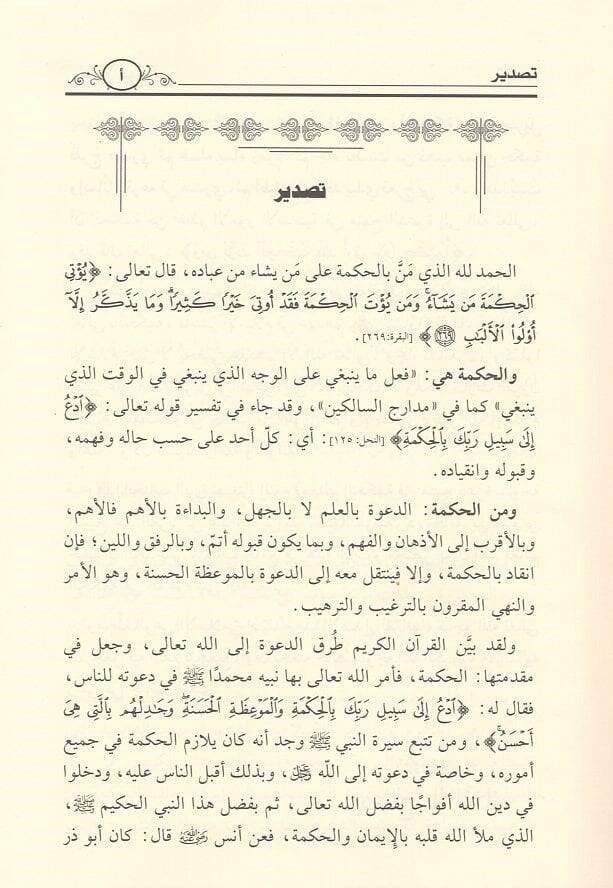 تصدير
أ
تصدير
الحمد لله الذي مَنَّ بالحكمة على مَن يشاء من عباده، قال تعالى: ﴿يُؤْتِي
الْحِكْمَةَ مَن يَشَاءُ وَمَن يُؤْتَ الْحِكْمَةَ فَقَدْ أُوتِيَ خَيْرًا كَثِيرًا وَمَا يَذَّكَّرُ إِلَّا
أُوْلُوا الْأَلْبَابِ ٢٦٩﴾ [البقرة:٢٦٩].
والحكمة هي: «فعل ما ينبغي على الوجه الذي ينبغي في الوقت الذي
ينبغي» كما في «مدارج السالكين»، وقد جاء في تفسير قوله تعالى: ﴿ادْعُ
إِلَى سَبِيلِ رَبِّكَ بِالْحِكْمَةِ﴾ [النحل: ١٢٥]: أي: كلّ أحد على حسب حاله وفهمه،
وقبوله وانقياده.
ومن الحكمة: الدعوة بالعلم لا بالجهل، والبداءة بالأهم فالأهم،
وبالأقرب إلى الأذهان والفهم، وبما يكون قبوله أتمّ، وبالرفق واللين؛ فإن
انقاد بالحكمة، وإلا فينتقل معه إلى الدعوة بالموعظة الحسنة، وهو الأمر
والنهي المقرون بالترغيب والترهيب.
ولقد بيَّن القرآن الكريم طُرق الدعوة إلى الله تعالى، وجعل في
مقدمتها: الحكمة، فأمر الله تعالى بها نبيه محمدًا ﷺ في دعوته للناس،
فقال له: ﴿ادْعُ إِلَى سَبِيلِ رَبِّكَ بِالْحِكْمَةِ وَالْمَوْعِظَةِ الْحَسَنَةِ وَجَادِلْهُم بِالَّتِي هِيَ
أَحْسَنُ﴾، ومن تتبع سيرة النبي ﷺ وجد أنه كان يلازم الحكمة في جميع
أموره، وخاصة في دعوته إلى الله ﷻ، وبذلك أقبل الناس عليه، ودخلوا
في دين الله أفواجًا بفضل الله تعالى، ثم بفضل هذا النبي الحكيم ﷺ،
الذي ملأ الله قلبه بالإيمان والحكمة، فعن أنس رضي الله عنه قال: كان أبو ذر